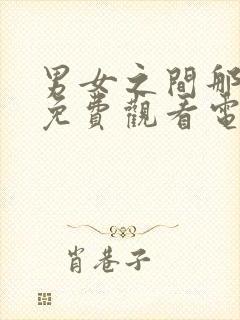 男女之間那
免費觀看電
肖巷子